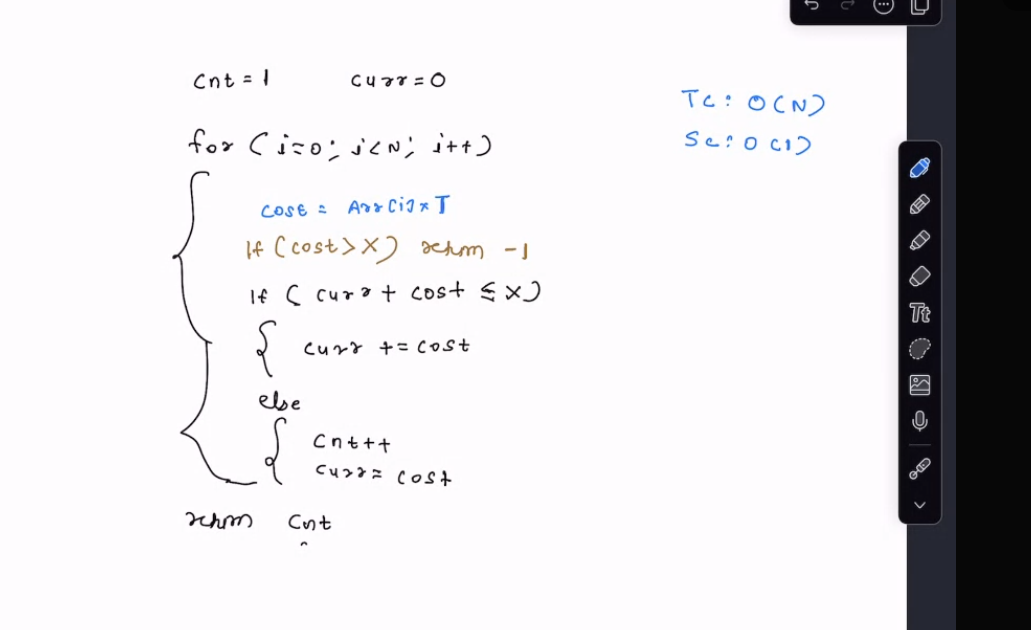 Cnt = 1 curr = 0
TC: O(N)
for (i=0; i<N; i++)
SC: O(1)
{
cost = Arr[i] x T
If (cost > X) return -1
If (curr + cost ≤ X)
{ curr += cost
else
{ Cnt++
curr = cost
return Cnt
Tt